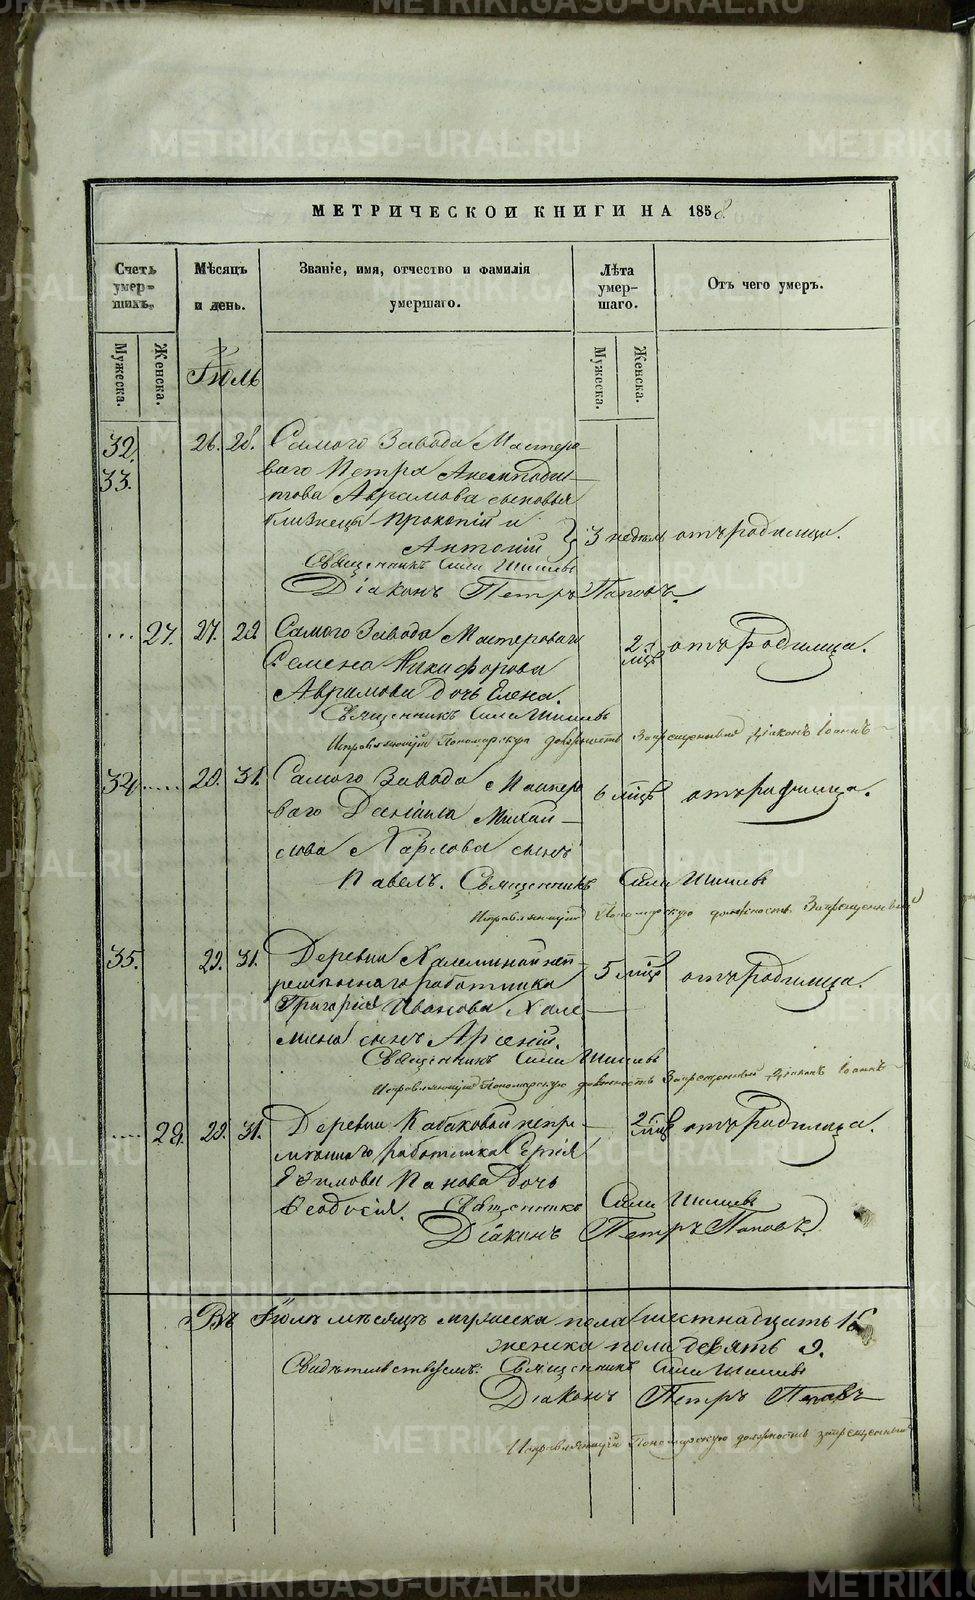 МЕТРИЧЕСКОИ КНИГИ НА 1858.
Счетъ умер-шихъ.
Мѣсяцъ и день.
Званіе, имя, отчество и фамилія умершаго.
Лѣта умер-шаго.
Отъ чего умеръ.
Мужеска.
Женска.
Мужеска.
Женска.
Іюль
32. 26. 28. Самого Завода Мастеро-
33. ваго Петра Анемподис-
това Аврамова сыновья
близнецы Прокопій и
Антоній } 3 недѣли отъ родимца.
Священникъ Сила Шишевъ
Діаконъ Петръ Поповъ.
... 27. 27. 29. Самого Завода Мастероваго 2. мцъ отъ Родимца.
Семена Никифорова
Аврамова дочь Елена.
Священникъ Сила Шишевъ
Исправляющій Пономарскую должность Запрещенный Діаконъ Іоаннъ
34. ..... 29. 31. Самого Завода Мастеро 6 мцъ отъ родимца.
ваго Даніила Михай-
лова Харлова сынъ
Павелъ. Священникъ Сила Шишевъ
Исправляющій Пономарскую должность Запрещенный
35. 29. 31. Деревни Халеминой неп- 5 мцъ отъ Родимца.
ремѣннаго работника
Григорія Иванова Хале-
мина сынъ Арсеній.
Священникъ Сила Шишевъ
Исправляющій Пономарскую должность Запрещенный Діаконъ Іоаннъ
..... 29. 29. 31. Деревни Кабаковой непре- 2 мцъ отъ Родимца.
мѣннаго работника Сергія
Ефимова Панова дочь
Ѳеодосія. Священникъ Сила Шишевъ
Діаконъ Петръ Поповъ.
Въ Іюлѣ мѣсяцѣ мужеска пола шестнадцать 16
женска пола девять 9.
Свидѣтельствуемъ: Священникъ Сила Шишевъ
Діаконъ Петръ Поповъ
Исправляющій Пономарскую должность запрещенный
METRIKI.GASO-URAL.RU